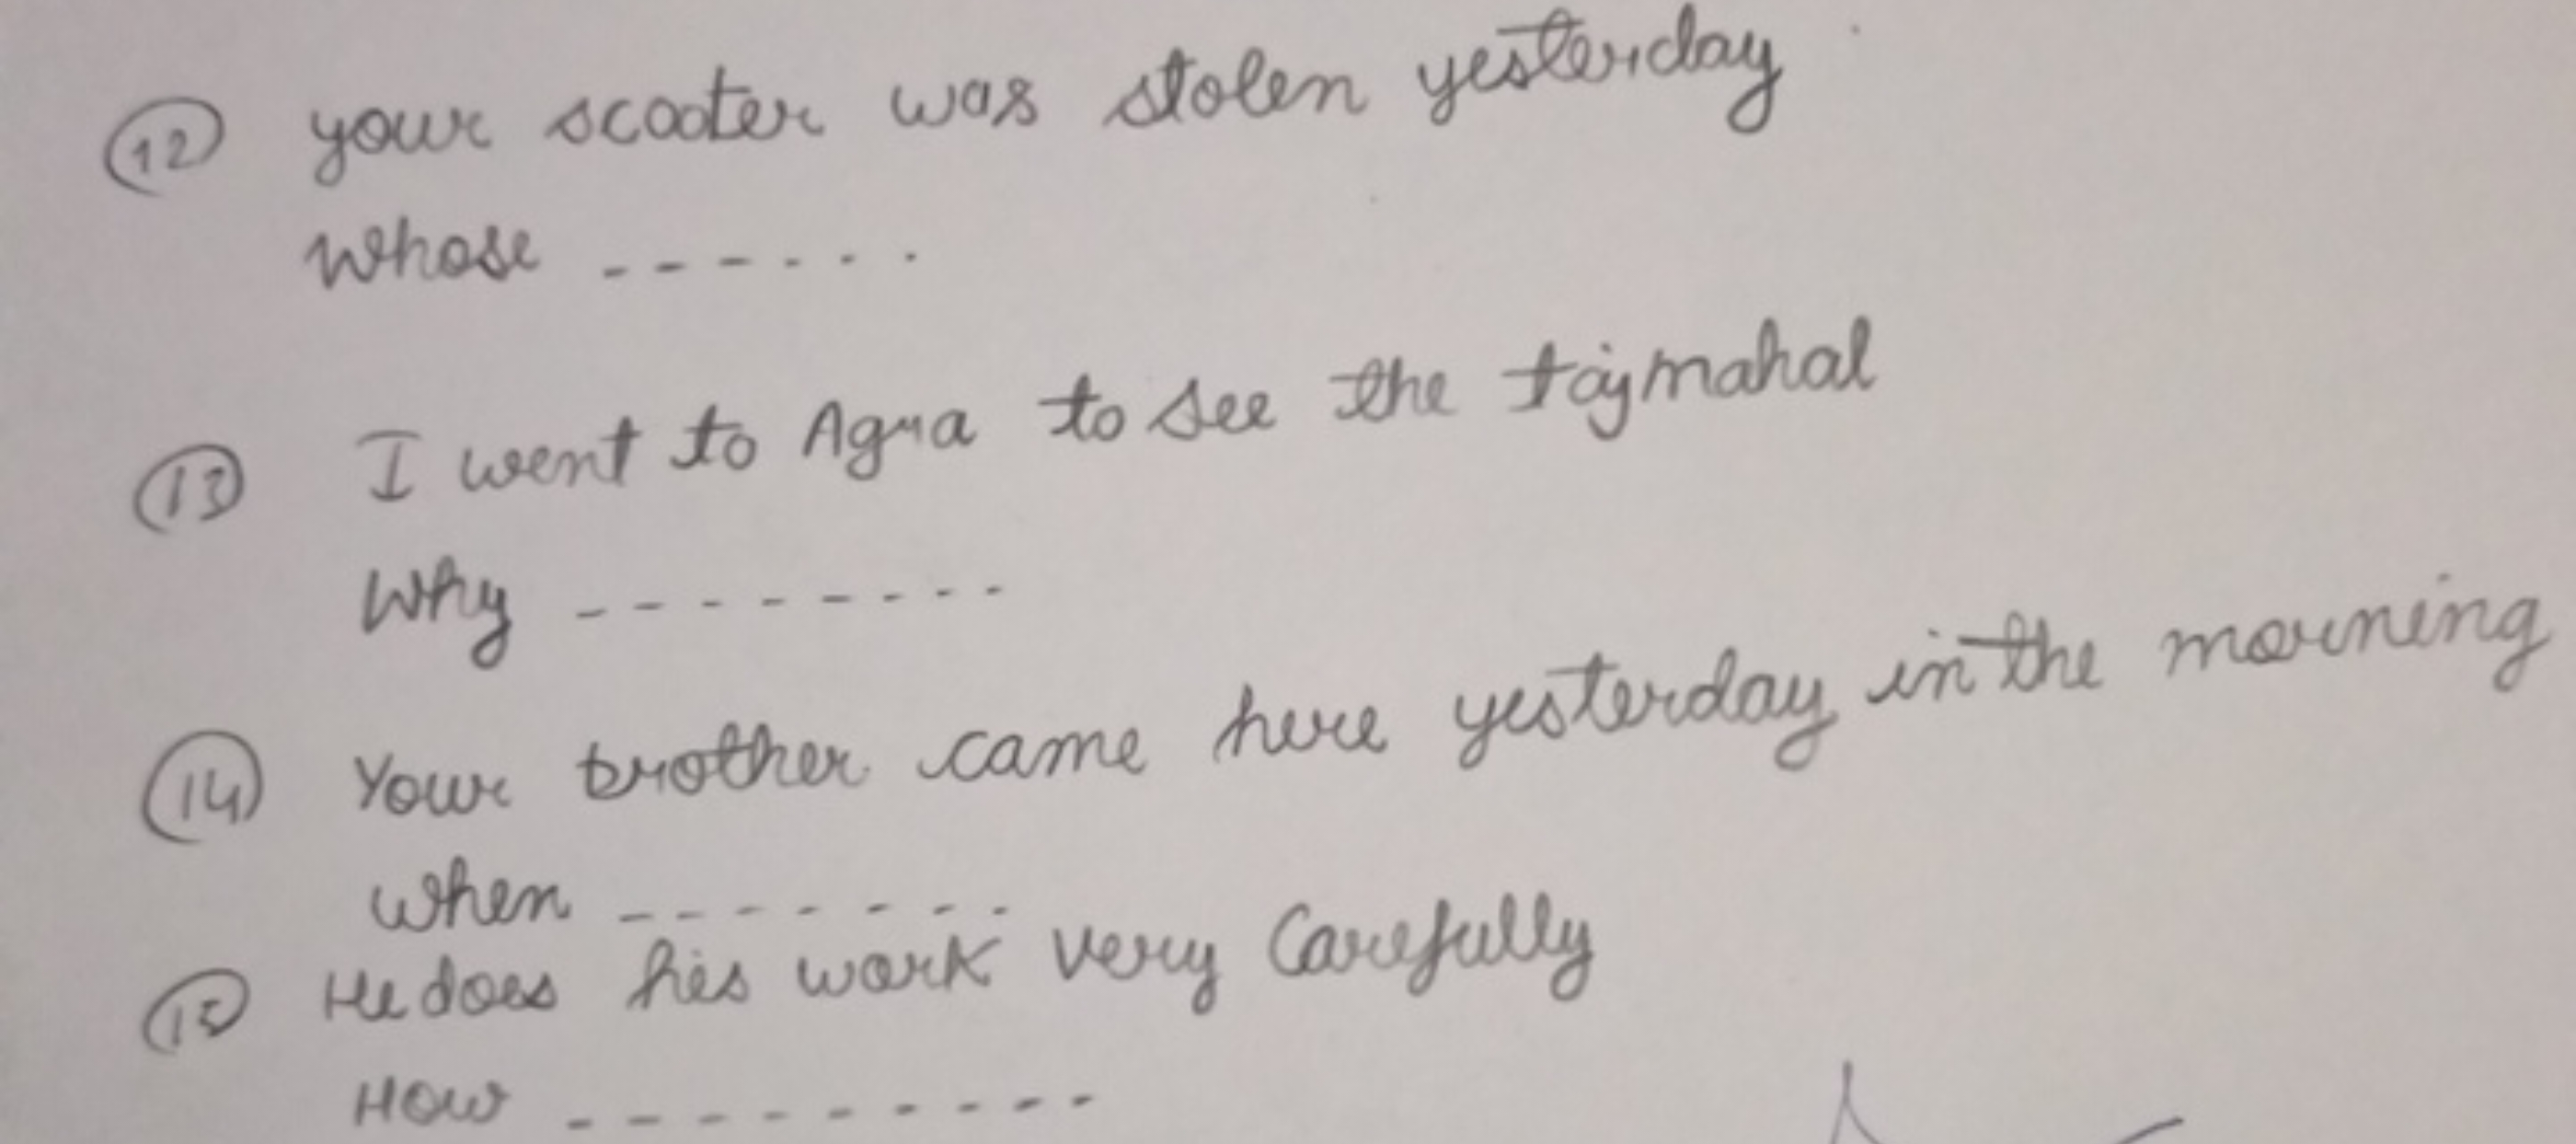 12 your scooter was stolen yesterday
Whose - - - - - -
13 I went to Agra to see the tajmahal
Why - - - - - - - -
14 Your brother came here yesterday in the morning
when - - - - - - -
15 He does his work very Carefully
How - - - - - - - - - -